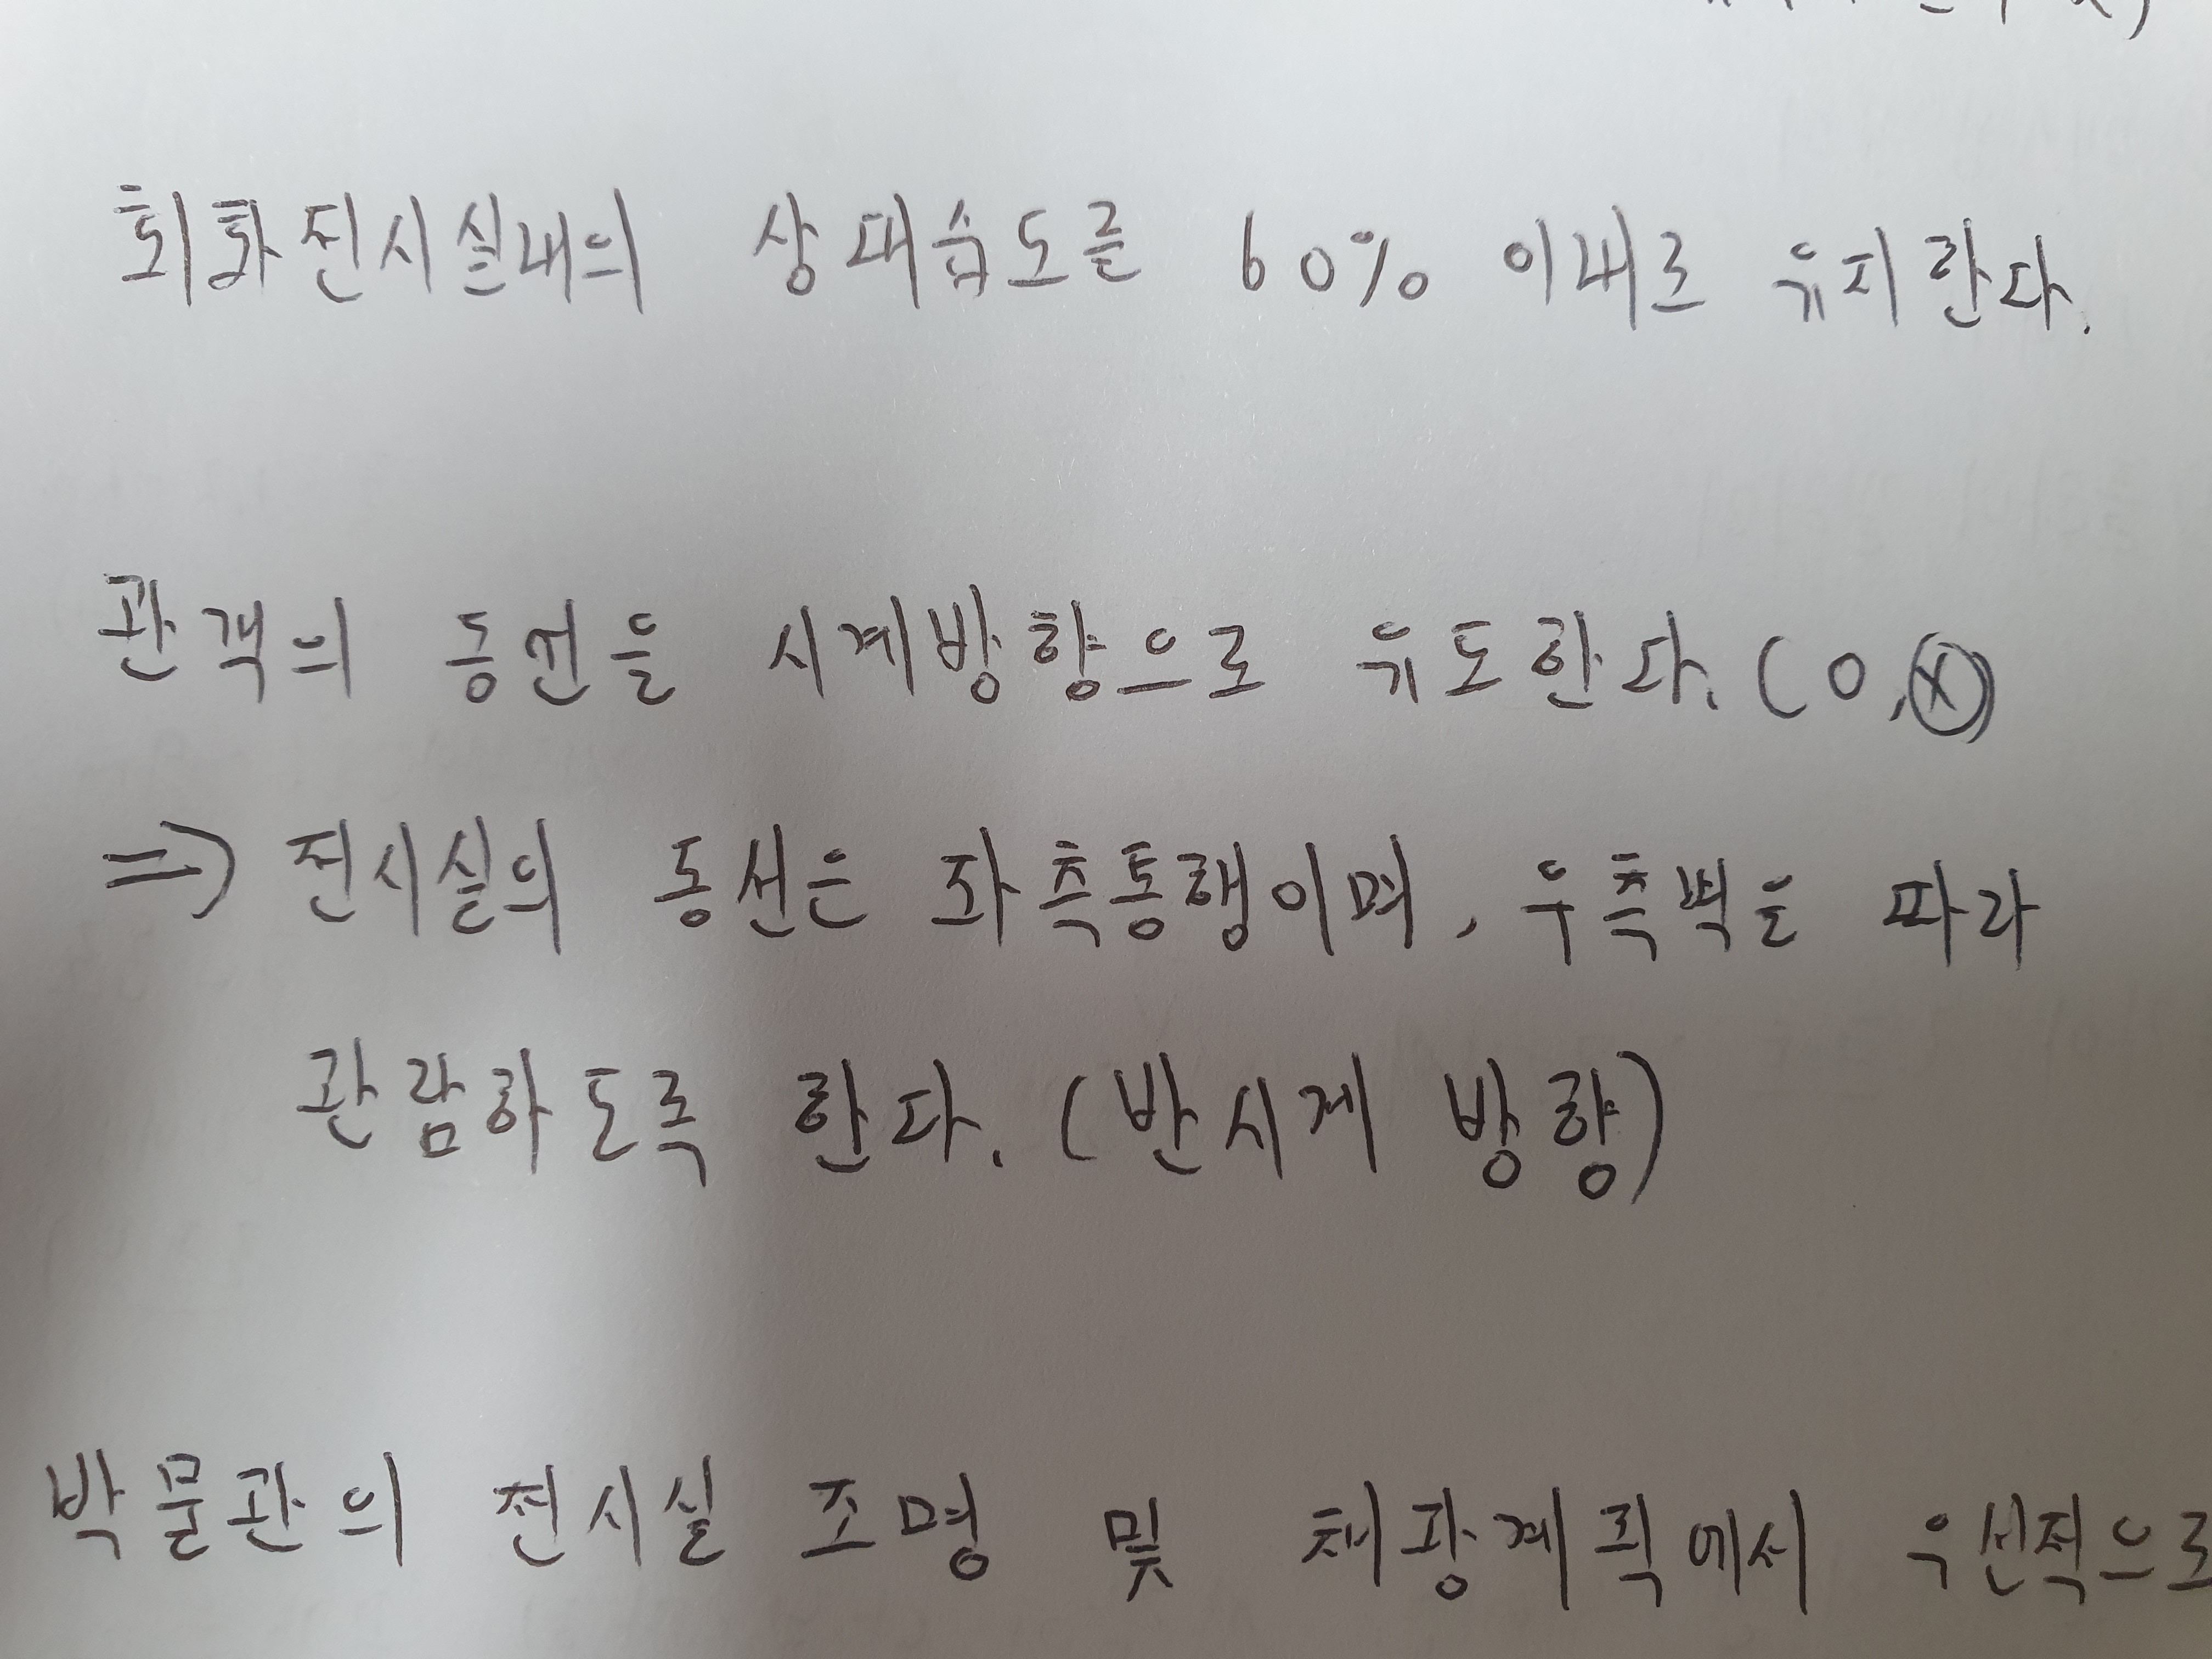 회화전시실내의 상대습도를 60% 이내로 유지한다.
관객의 동선을 시계방향으로 유도한다. (O, X)
=> 전시실의 동선은 좌측통행이며, 우측벽을 따라
관람하도록 한다. (반시계 방향)
박물관의 전시실 조명 및 채광계획에서 우선적으로